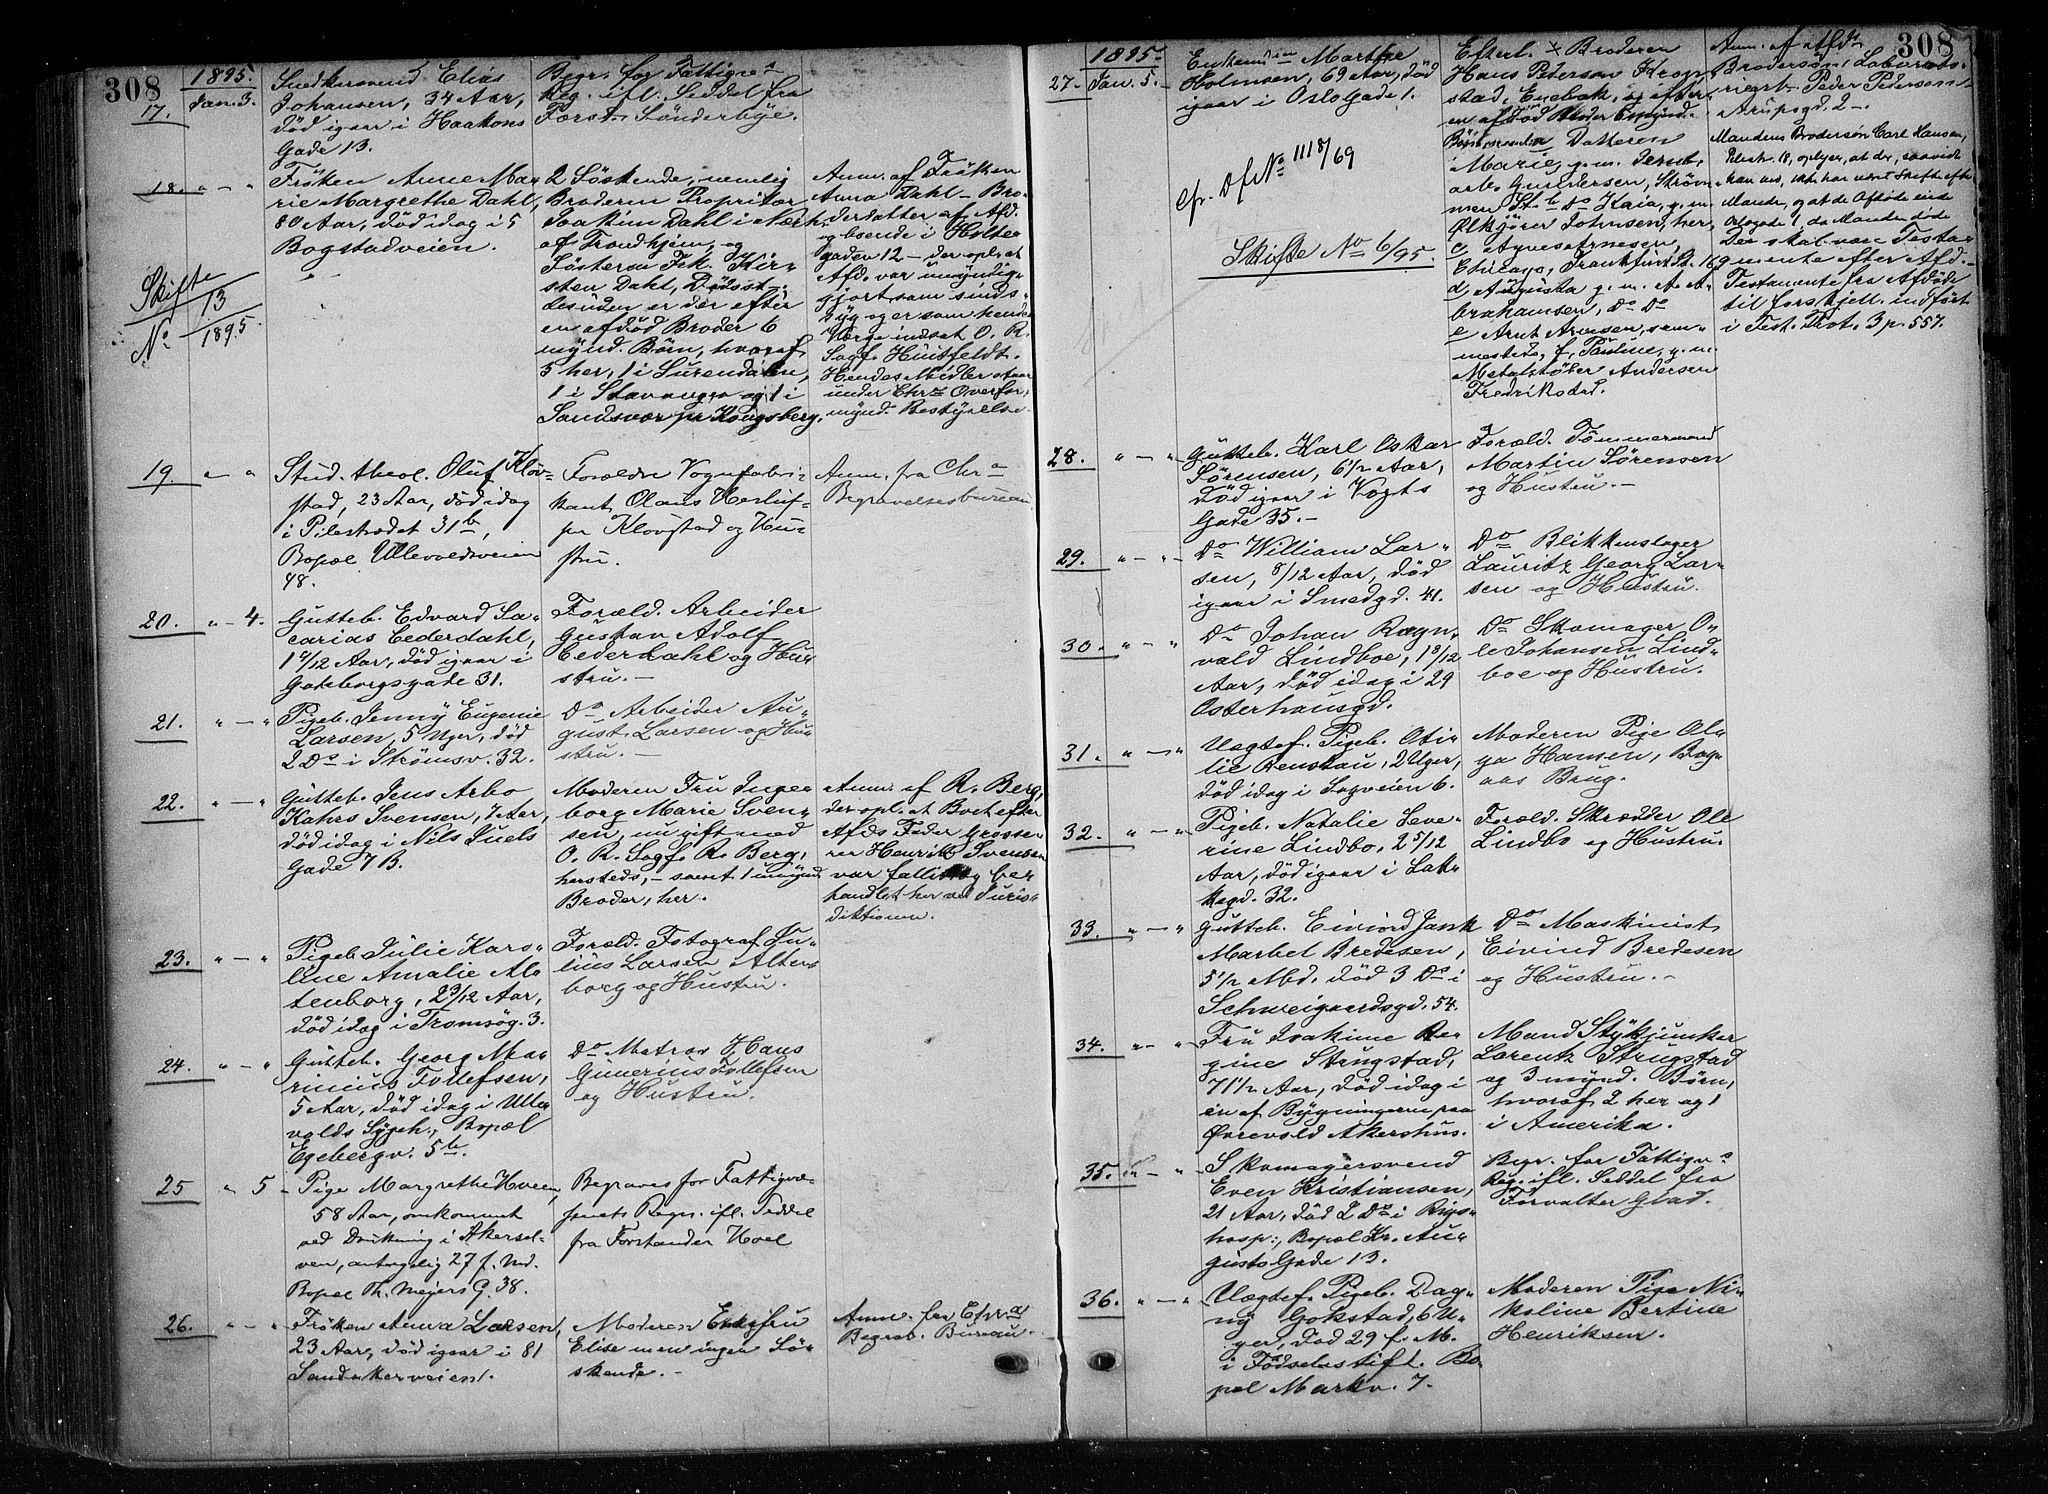 308
1895.
17. Jan. 3.
Snedkersvend Elias
Johansen, 34 Aar,
død igaar i Haakons
Gade 13.
Begr. for Fattigv.s
Reg. ifl. Seddel fra
Forst. Sønderbye.
18. " — "
Frøken Anne Ma-
rie Margrethe Dahl,
80 Aar, død idag i 5
Bogstadveien.
Skifte
No 13/1895.
2 Søskende, nemlig
Broderen Proprietør
Joakim Dahl i Nærh.
af Trondhjem, og
Søsteren Frk. Kir-
sten Dahl,
desuden er der efter
en afdød Broder 6
mynd. Børn, hvoraf
5 her, 1 i Surendalen,
1 i Stavanger og 1 i
Sandsvær pr Kongsberg.
Anm. af Frøken
Anna Dahl — Bro-
derdatter af Afd.
og boende i Holter
gaden 12 — der opl. at
Afd. var umyndig-
gjort som sinds-
syg og er som hendes
Værge indsat O. R.
Sagf. Huitfeldt.
Hendes Midler staar
under Chr.a Overfor-
mynd. Bestyrelse.
19. " — "
Stud. theol. Oluf Klov-
stad, 23 Aar, død idag
i Pilestrædet 31b,
Bopæl Ullevoldsveien
48.
Forældre Vognfabri-
kant Olaus Herluf-
Klovstad og Hu-
stru.
Anm. fra Chr.a
Begravelsesbureau
20. " — 4.
Gutteb. Edvard Sa-
carias Cederdahl,
død igaar i
Gøteborgsgade 31.
Foræld. Arbeider
Gustav Adolf
Cederdahl og Hu-
stru. —
21. " — "
Pigeb. Jenny Eugenie
Larsen, 5 Uger, død
2 Ds i Strømsv. 32.
Do Arbeider Au-
gust Larsen og Hu-
stru. —
22. " — "
Gutteb. Jens Arbo
Kahrs Svensen, 7 Aar,
død idag i Nils Juels
Gade 7 B.
Moderen Fru Inge-
borg Marie Sven-
sen, nu gift med
O. R. Sagf. R. Berg,
hersteds, — samt 1 umynd.
Broder, her.
Anm. af R. Berg,
der opl. at Boet efter
Afds Fader Grosse-
rer Henrik Svensen
var fallit og be-
handlet her ved Juris-
diktionen.
23. " — "
Pigeb. Julie Karo-
line Amalie Al-
tenborg, 2 3/12 Aar,
død idag i Tromsøg. 3.
Foræld. Fotograf Ju-
lius Larsen Alten-
borg og Hustru.
24. " — "
Gutteb. Georg Ma-
rinius Tollefsen,
5 Aar, død idag i Ulle-
volds Sygeh., Bopæl
Egebergv. 5b.
Do Matros Hans
Gunerius Tollefsen
og Hustru.
25 " 5 -
Pige Margrethe Hveen,
58 Aar, omkommet
ved Drukning i Akersel-
ven, antagelig 27 f. Md.
Bopæl Th. Meyers G. 38.
Begraves for Fattigvæ-
senets Regn. ifl. Seddel
fra Forstander Hoel
26. " — "
Frøken Anna Larsen,
23 Aar, død igaar i 81
Sandakerveien.
Moderen Enkefru
Elise men ingen Sø-
skende. —
Anm. fra Chr.a
Begrav. Bureau.
308
1895.
27. Jan. 5.
Enkemadam Marthe
Holmsen, 69 Aar, død
igaar i Oslogade 1.
cfr. Df. No 1118/69
Skifte No 6/95.
Efterl. Broderen
Hans Pedersen Kron-
stad, Enebak, og efter
en afdød Broder 6 mynd.
Børn, Datteren
Marie, g. m. Jernb.
arb. Gundersen, Strøm-
men St. b Do Kaia, g. m.
Ølkjører Johnsen, her,
c, Agnes Arnesen,
Chicago, Frankfurt St. 169
d, Augusta g. m. A. A-
brahamsen, Do Do
e Arnt Arnesen, sam-
mesteds, f, Pauline, g. m.
Metalstøber Andersen
Fredrikstad.
Anm. af Afds
Brodersøn Laborato-
riearb. Peder Pedersen
Arupsgd. 2 —.
Mandens Brodersøn Carl Hansen,
Pilestr. 18, oplyser, at der, saavidt
han ved, ikke har været Skifte efter
Manden, og at de Afdøde eiede
Oslogade 1, da Manden døde
Der skal være Testa-
mente efter Afd. —
Testamente fra Afdøde
til forskjell. indført
i Test. Prot. 3 p. 557.
28. " — "
Gutteb. Karl Oskar
Sørensen, 6 1/2 Aar,
død igaar i Vogts
Gade 35. —
Foræld. Tømmermand
Martin Sørensen
og Hustru. —
29. " — "
Do William Lar-
sen, 8/12 Aar, død
igaar i Smedgd. 41.
Do Blikkenslager
Lauritz Georg Lar-
sen og Hustru.
30. " — "
Do Johan Ragn-
vald Lindboe, 1 8/12
Aar, død idag i 29
Osterhausgd.
Do Skomager O-
le Johansen Lind-
boe og Hustru.
31. " — "
Uægtef. Pigeb. Oti-
lie Renskau, 2 Uger,
død idag i Sagveien 6.
Moderen Pige Ol-
ga Hansen, Bag-
aas Brug.
32. " — "
Pigeb. Natalie Seve-
rine Lindbo, 2 5/12
Aar, død igaar i Lak-
kegd. 32.
Foræld. Skrædder Ole
Lindbo og Hustru.
33. " — "
Gutteb. Eivind Jank
Marbel Bredesen,
5 1/2 Md. død 3 Ds i
Schweigaardsgd. 54.
Do Maskinist
Eivind Bredesen
og Hustru. —
34. " — "
Fru Joakime Re-
gine Strugstad,
71 1/2 Aar, død idag i
en af Bygningerne paa
Øvrevold Akershus.
Mand Stykjunker
Lorentz Strugstad
og 3 mynd. Børn,
hvoraf 2 her og 1
i Amerika.
35. " — "
Skomagersvend
Even Kristiansen,
21 Aar, død 2 Ds i Rigs-
hosp., Bopæl Kr. Au-
gusts Gade 13.
Begr. for Fattigv.s
Reg. ifl. Seddel fra
Forvalter Glad.
36. " — "
Uægtef. Pigeb. Dag-
ny Gokstad, 6 U-
ger, død 29 f. M.
i Fødselsstift. Bo-
pæl Markv. 7.
Moderen Pige Ni-
koline Bertine
Henriksen.